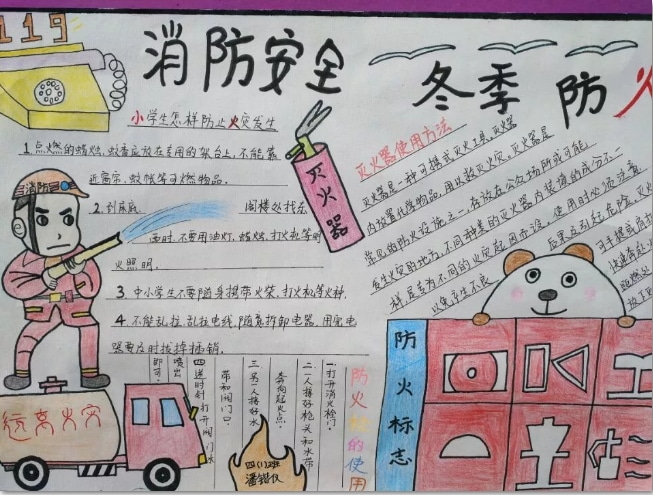 119
消防安全
冬季防火
小学生怎样防止火灾发生
1.点燃的蜡烛、蚊香应放在专用的架台上,不能靠
近窗帘、蚊帐等可燃物品。
2.到床底 阁楼处找东
西时,不要用油灯、蜡烛、打火机等明
火照明。
3.中小学生不要随身携带火柴、打火机等火种.
4.不能乱拉、乱拉电线,随意拆卸电器,用完电
器要及时拔掉插销.
消防
灭火器
灭火器使用方法
灭火器是一种可携式灭火工具。灭火器
内放置化学物品,用以救灭火灾。灭火器是
常见的防火设施之一,存放在公众场所或可能
发生火灾的地方,不同种类的灭火器内装填的成分不一
样,是专为不同的火灾起因而设。使用时必须注意
以免产生不良 后果及引起危险。
远离火灾
防火栓的使用
一.打开消火栓门.
二.一人接好枪头和水带
奔向起火点.
三.另一人接好水
带和阀门口.
四.逆时针打开阀门水
喷出
即可.
四(1)班
防火标志